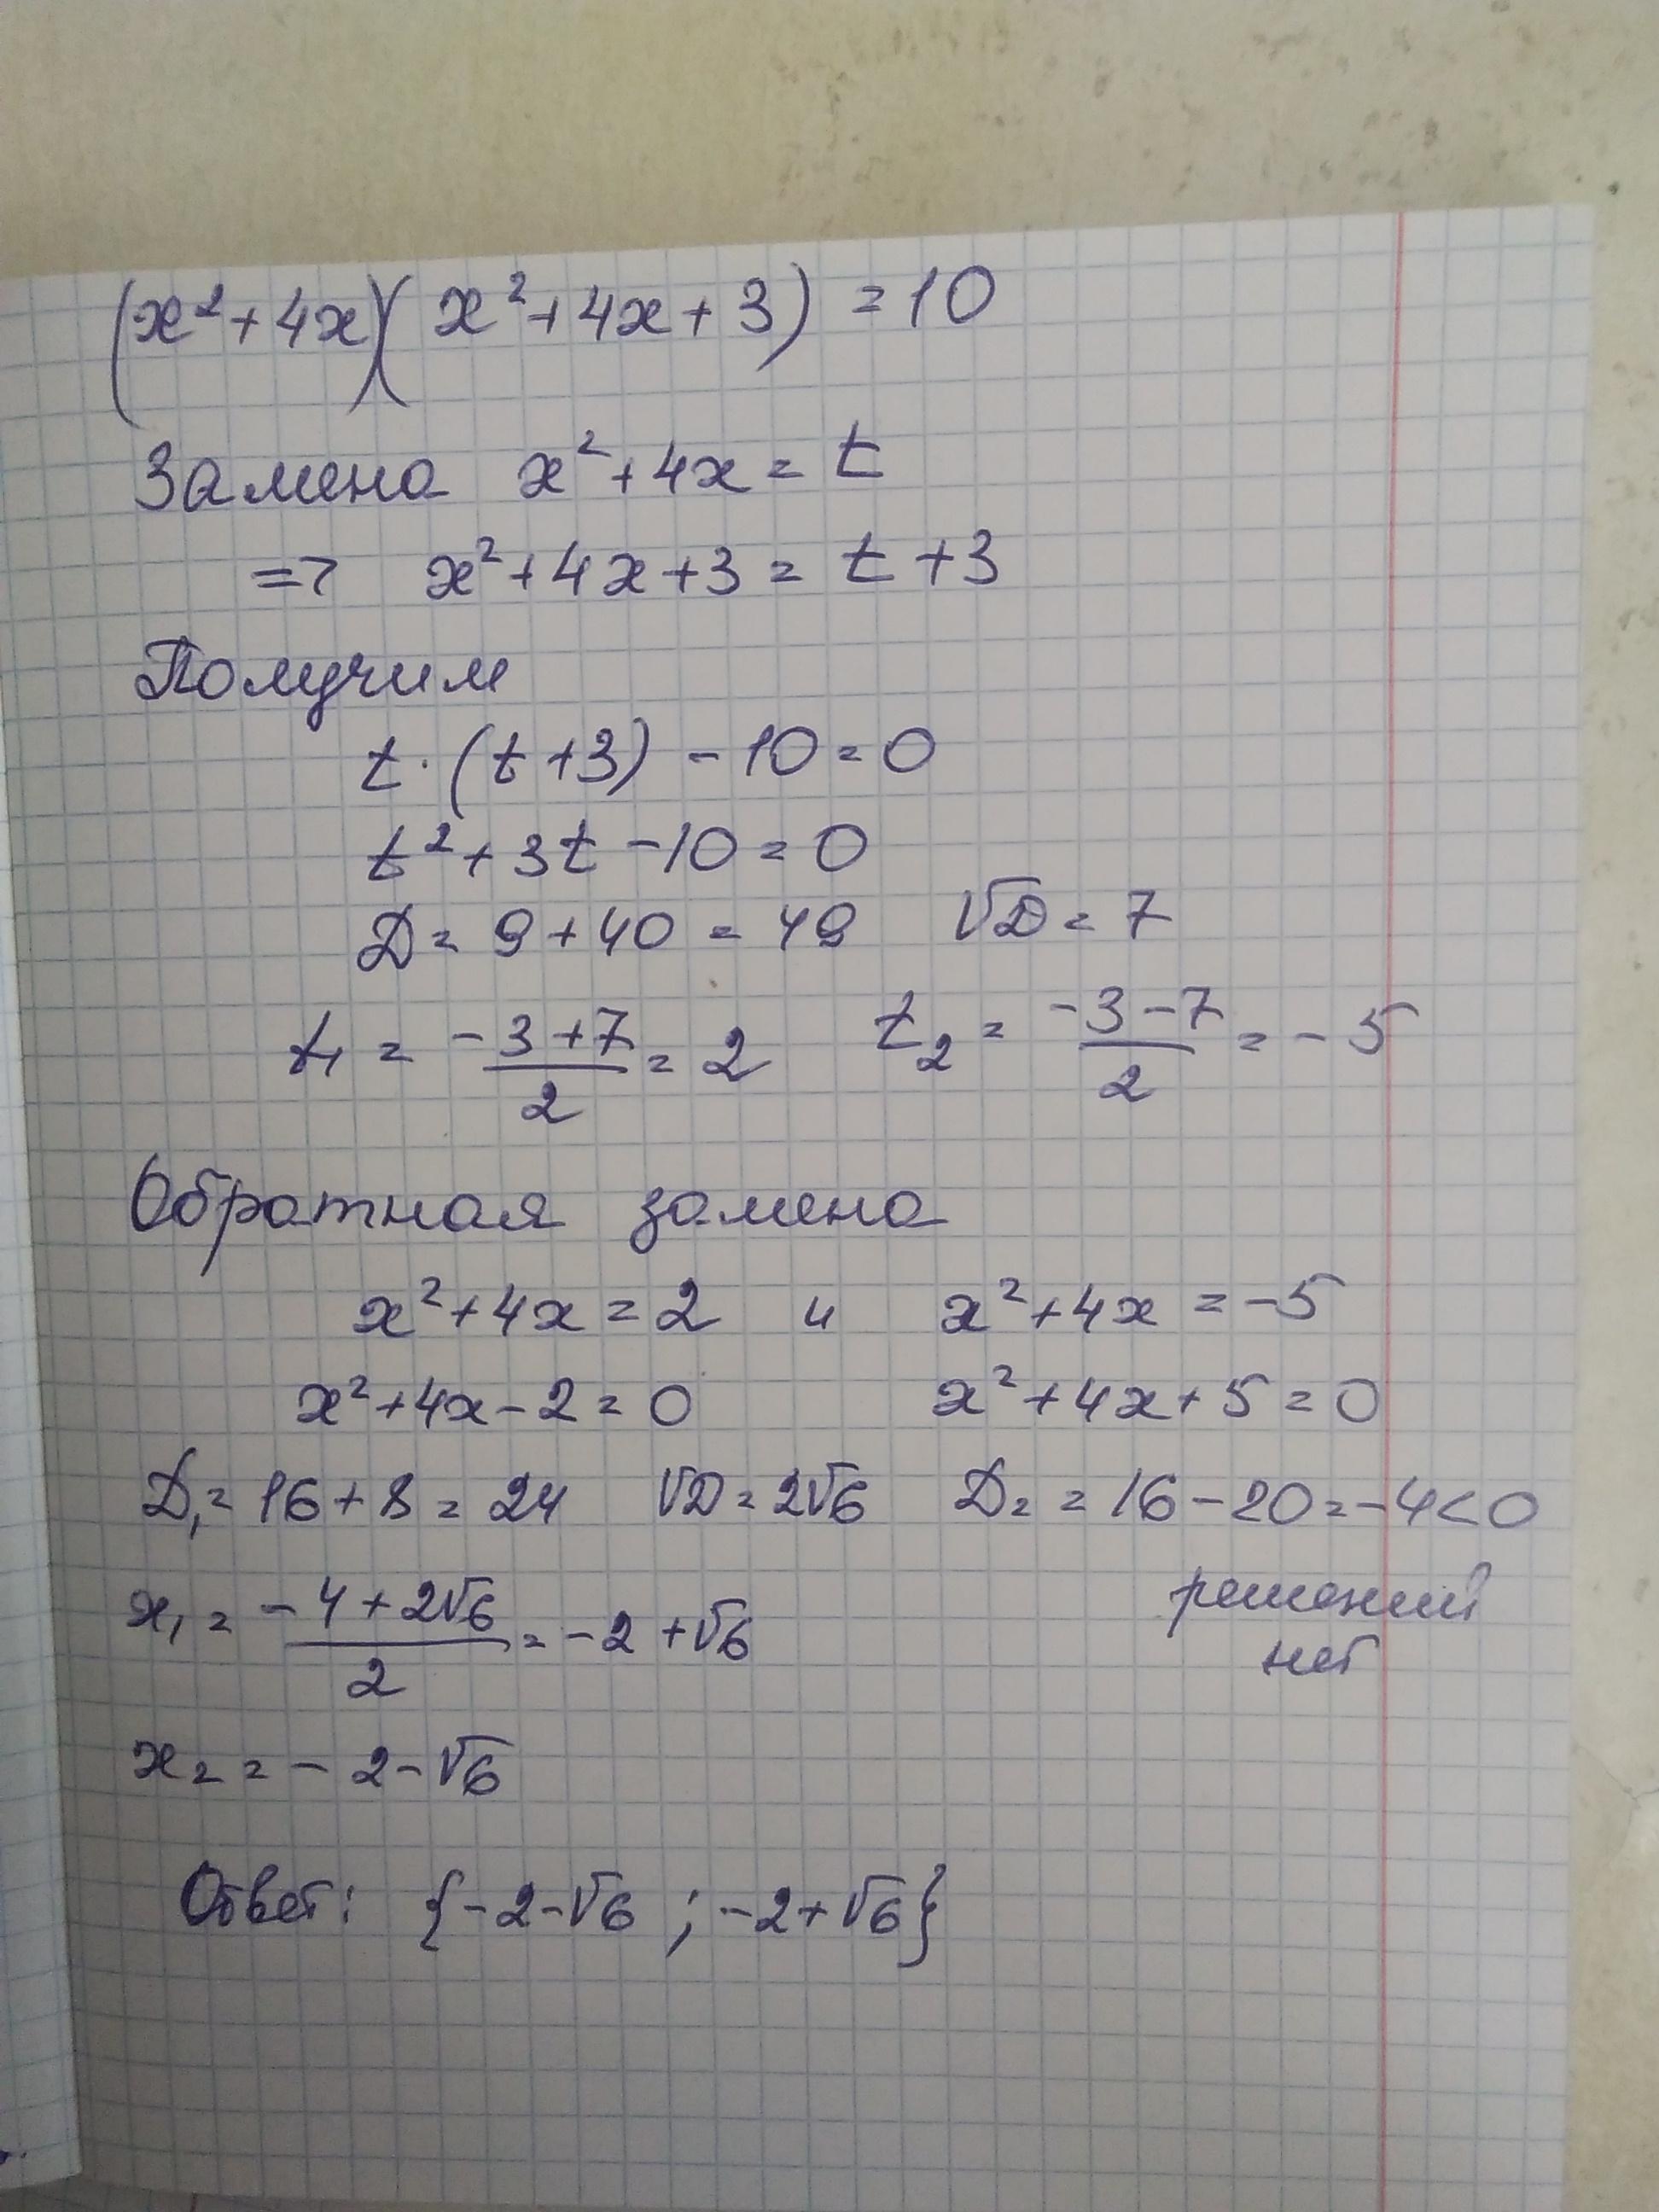 (x²+4x)(x²+4x+3)=10
Замена x²+4x=t
=> x²+4x+3=t+3
Получим
t·(t+3)-10=0
t²+3t-10=0
D=9+40=49 √D=7
t₁=(-3+7)/2=2 t₂=(-3-7)/2=-5
Обратная замена
x²+4x=2 и x²+4x=-5
x²+4x-2=0 x²+4x+5=0
D₁=16+8=24 √D=2√6 D₂=16-20=-4<0
x₁=(-4+2√6)/2=-2+√6 решений
нет
x₂=-2-√6
Ответ: {-2-√6; -2+√6}